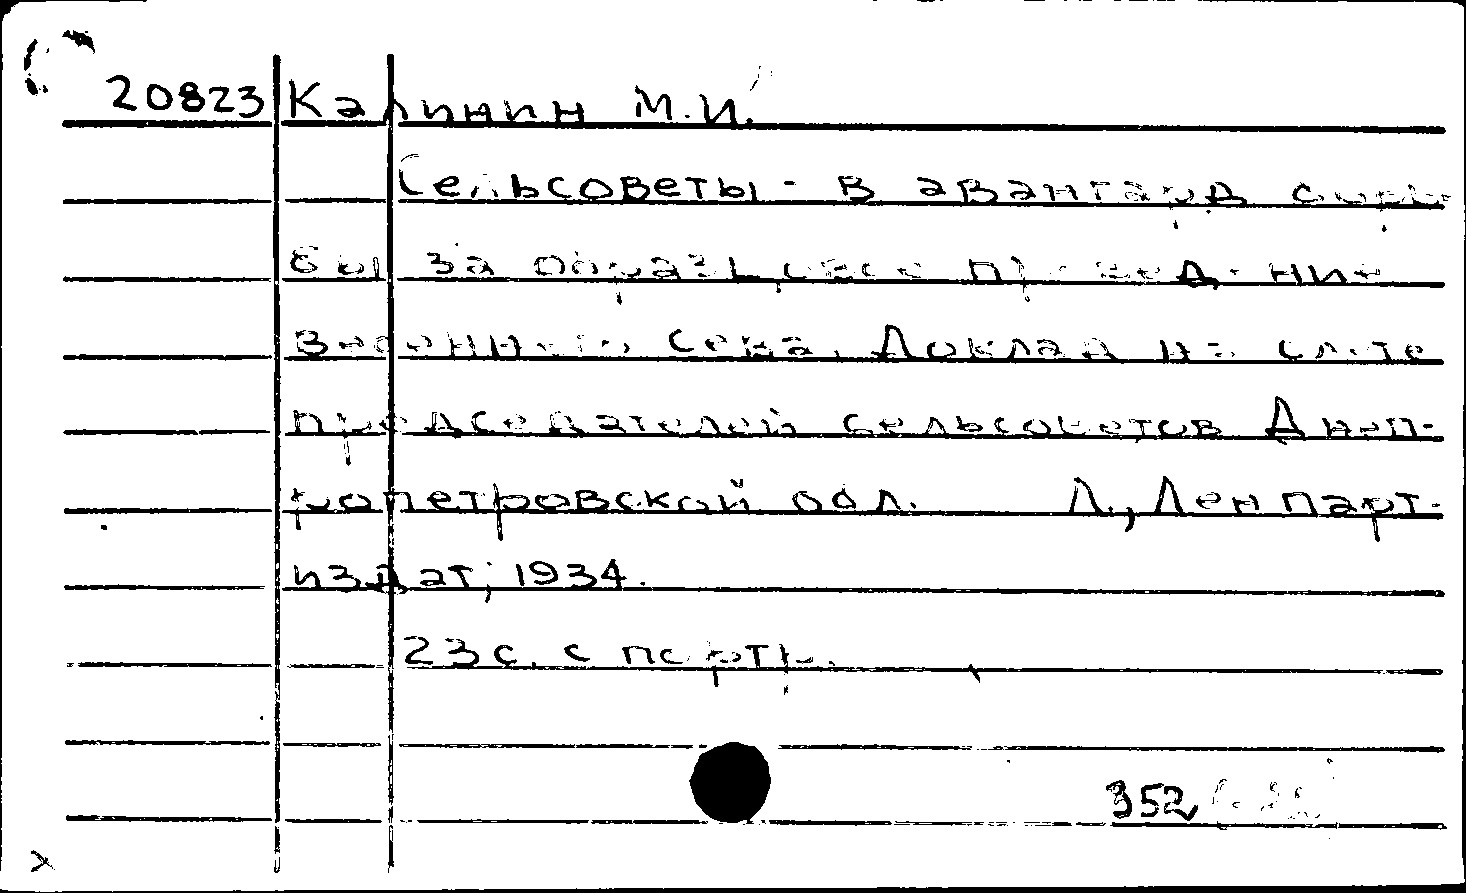 20823 Калинин М.И.
Сельсоветы - в авангард борь
бы за образцовое проведение
весеннего сева. Доклад на слете
председателей сельсоветов Днеп-
ропетровской обл. Л., Ленпарт-
издат, 1934.
23 с. с портр.
352